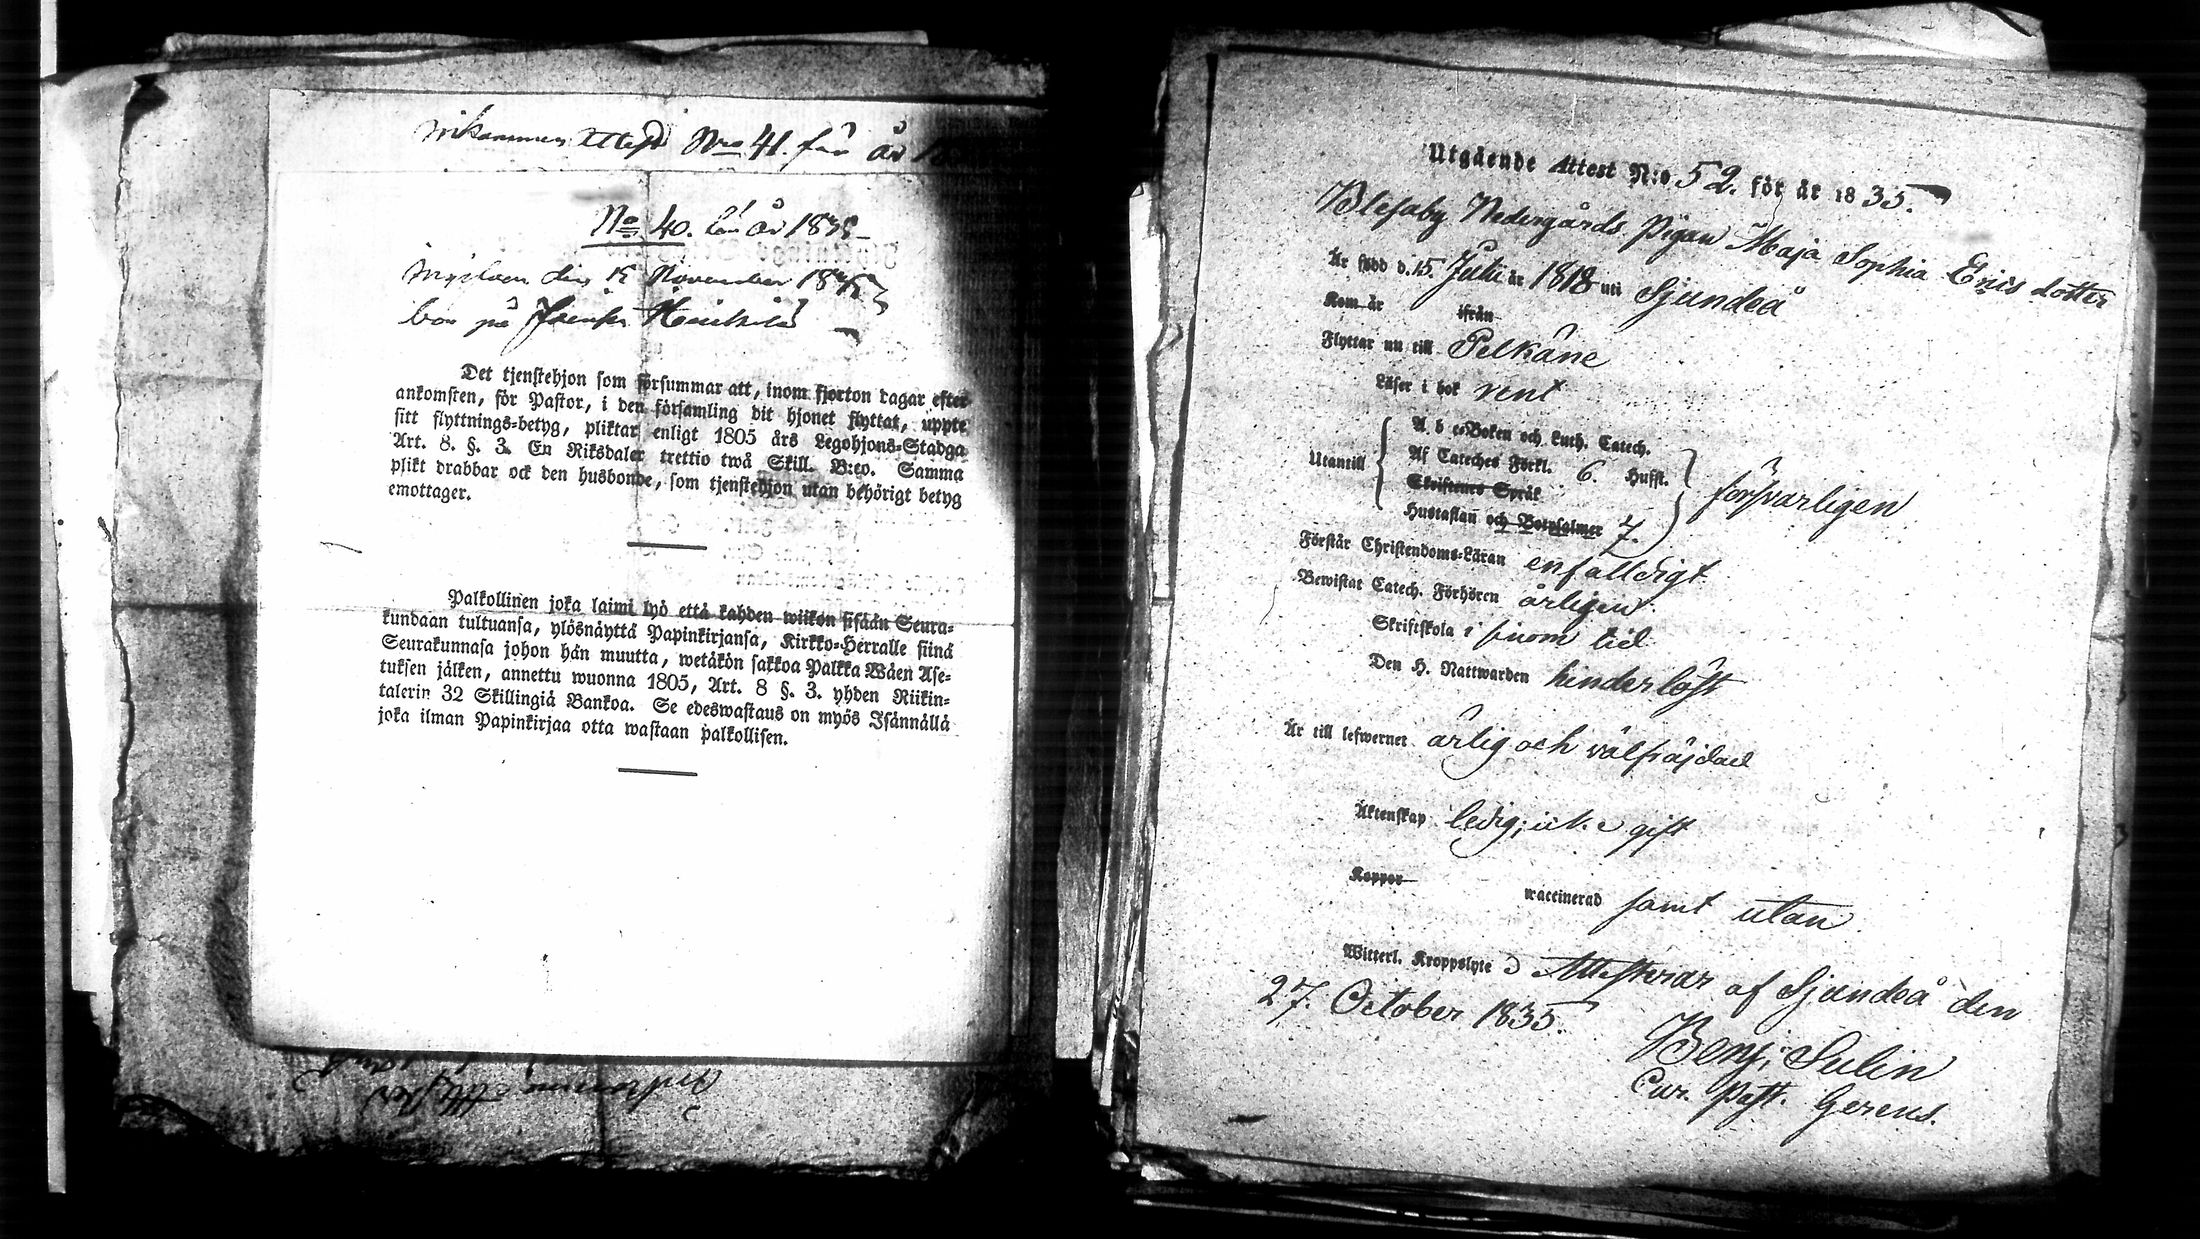 Inkommen Attest Nro 41. för år 18
No 40. för år 1835
den 15 November 1835
bor på Heickilä
Det tjenstehjon som försummar att, inom fjorton dagar efter
ankomsten, för Pastor, i den församling dit hjonet flyttat, uppte
sitt flyttnings-betyg, pliktar enligt 1805 års Legohjons-Stadga
Art. 8. §. 3. En Riksdaler trettio twå Skill. B:co. Samma
plikt drabbar ock den husbonde, som tjenstehjon utan behörigt betyg
emottager.
Palkollinen joka laimi lyö että kahden wiikon sisään Seura-
kundaan tultuansa, ylösnäyttä Papinkirjansa, Kirkko-Herralle siinä
Seurakunnasa johon hän muutta, wetäkön sakkoa Palkka Wäen Ase-
tuksen jälken, annettu wuonna 1805, Art. 8 §. 3. yhden Riikin-
talerin 32 Skillingiä Bankoa. Se edeswastaus on myös Isännällä
joka ilman Papinkirjaa otta wastaan palkollisen.
Utgående Attest N:o 52. för år 1835.
Nedergårds Pigan Maja Sophia Erics dotter
Är född d. 15. Julii år 1818 uti Sjundeå
Kom år ifrån
Flyttar nu till Pelkäne
Läser i bok rent
A b c-Boken och Luth. Catech.
Utantill Af Cateches Förkl. 6. Hufst. försvarligen
Skriftenes Språk
Hustaflan och Botpsalmer 7.
Förstår Christendoms-Läran enfalldigt
Bewistat Catech. Förhören årligen
Skriftskola i sinom tid
Den H. Nattwarden hinderlöst
Är till lefwernet ärlig och välfräjdad
Äktenskap ledig; icke gift
Koppor waccinerad samt utan
Witterl. Kroppslyte Attesterar af Sjundeå den
27. October 1835.
Benj; Sulin
Cur. Past. Gerens.